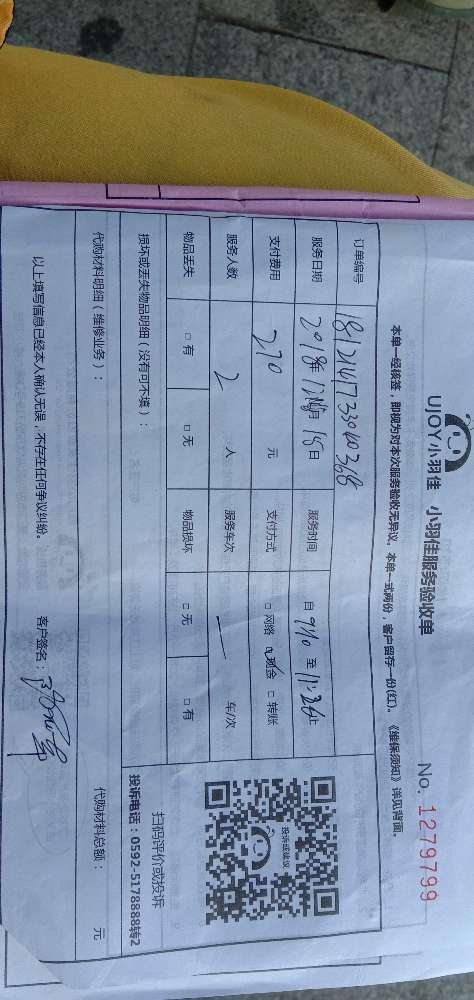 UJOY小羽佳 小羽佳服务验收单
No. 1279799
本单一经核签，即视为对本次服务验收无异议。本单一式两份，客户留存一份(红)。《维保须知》详见背面。
订单编号
服务日期 2018年12月18日 服务时间 自 9:10 至 11:26止
支付费用 270 元 支付方式 □网络 ☑现金 □转账
服务人数 2 人 服务车次 一 车/次
物品丢失 □有 □无 物品损坏 □无 □有
投诉或建议
扫码评价或投诉
投诉电话：0592-5178888转2
损坏或丢失物品明细（没有可不填）：
代购材料明细（维修业务）： 代购材料总额： 元
以上填写信息已经本人确认无误，不存在任何争议纠纷。 客户签名：